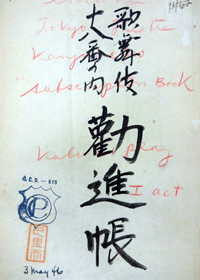 歌舞伎
十八番の内
勸進帳
Tokyo Theatre
"Subscription Book"
Kabuki play
I act
C.C.D. - 815
3 May 46